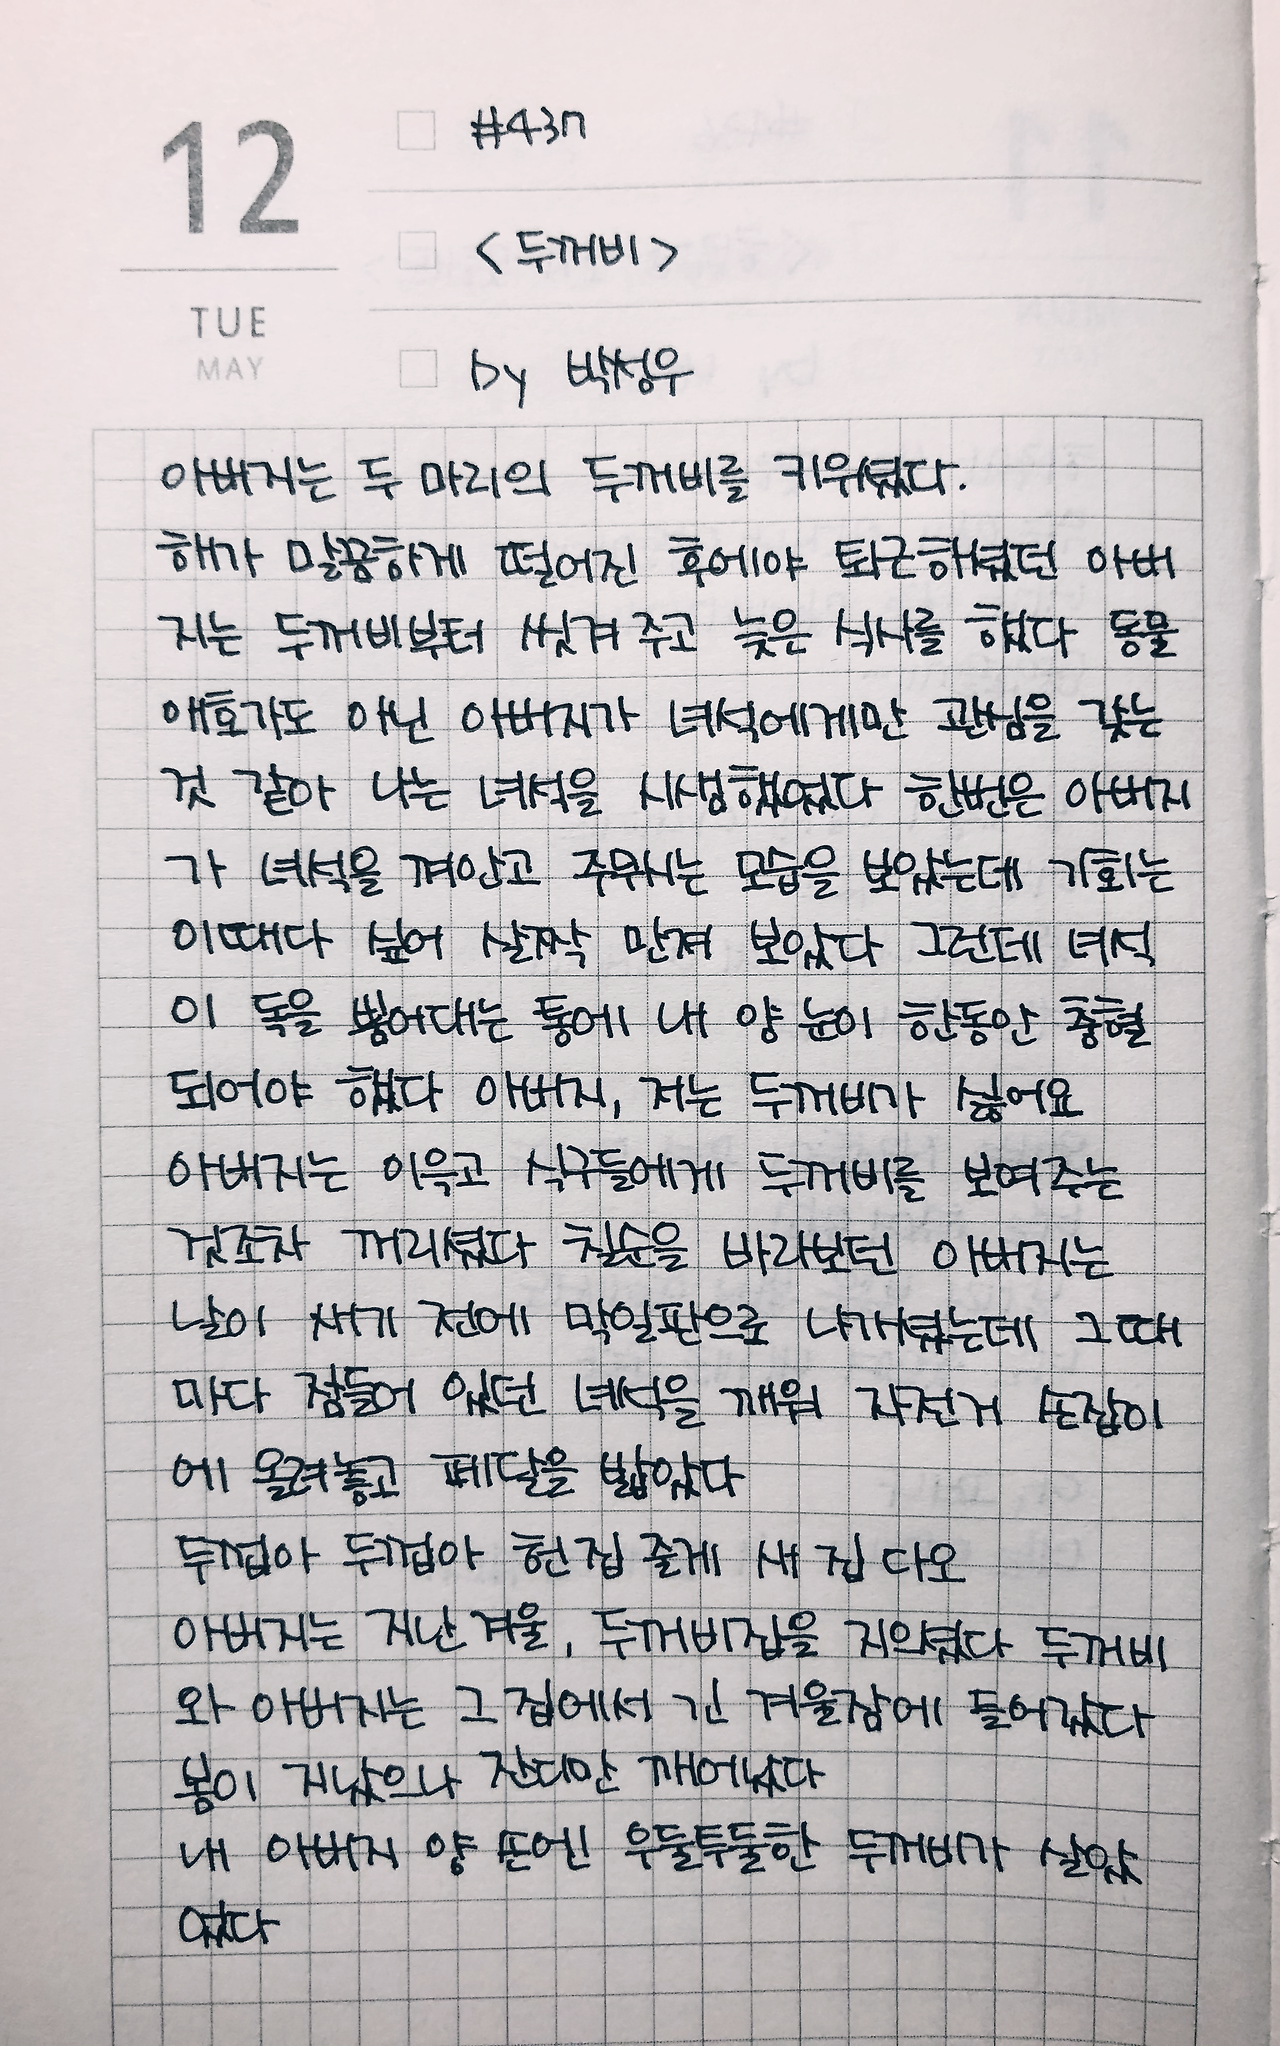 12
TUE
MAY
#437
<두꺼비>
by 박성우
아버지는 두 마리의 두꺼비를 키우셨다.
해가 말끔하게 떨어진 후에야 퇴근하셨던 아버
지는 두꺼비부터 씻겨 주고 늦은 식사를 했다 동물
애호가도 아닌 아버지가 녀석에게만 관심을 갖는
것 같아 나는 녀석을 시샘했었다 한번은 아버지
가 녀석을 껴안고 주무시는 모습을 보았는데 기회는
이때다 싶어 살짝 만져 보았다 그런데 녀석
이 독을 뿜어대는 통에 내 양 눈이 한동안 충혈
되어야 했다 아버지, 저는 두꺼비가 싫어요
아버지는 이윽고 식구들에게 두꺼비를 보여주는
것조차 꺼리셨다 칠순을 바라보던 아버지는
날이 새기 전에 막일판으로 나가셨는데 그때
마다 잠들어 있던 녀석을 깨워 자전거 손잡이
에 올려놓고 페달을 밟았다
두껍아 두껍아 헌집 줄게 새 집 다오
아버지는 지난 겨울, 두꺼비집을 지으셨다 두꺼비
와 아버지는 그 집에서 긴 겨울잠에 들어갔다
봄이 지났으나 잔디만 깨어났다
내 아버지 양 손엔 우둘투둘한 두꺼비가 살았
었다